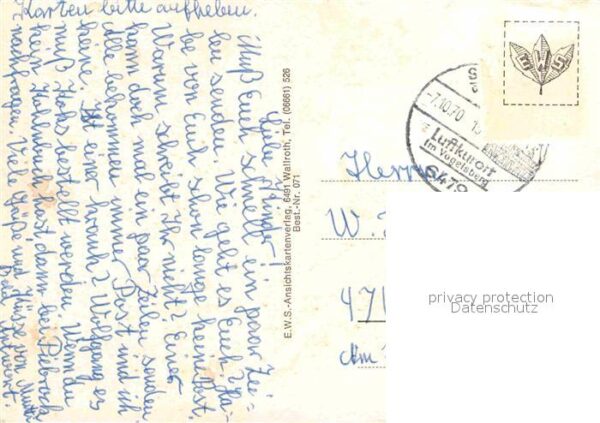 Karten bitte aufheben.
Liebe Kinder!
Muß Euch schnell ein paar Zei-
len senden. Wie geht es Euch? Ha-
be von Euch schon lange keine Post.
Warum schreibt Ihr nicht? Einer
kann doch mal ein paar Zeilen senden
Alle bekommen immer Post und ich
keine. Ist einer krank? Wolfgang es
muß Koks bestellt werden. Wenn du
kein hast dann bei
nachfragen. Viele Grüße und Küsse von Mutti
Bald Antwort.
E.W.S.-Ansichtskartenverlag, 6491 Wallroth, Tel. (06661) 526
Best.-Nr. 071
E W S
-7.10.70
Luftkurort
im Vogelsberg
6479
Herrn
W.
47
Am
privacy protection
Datenschutz